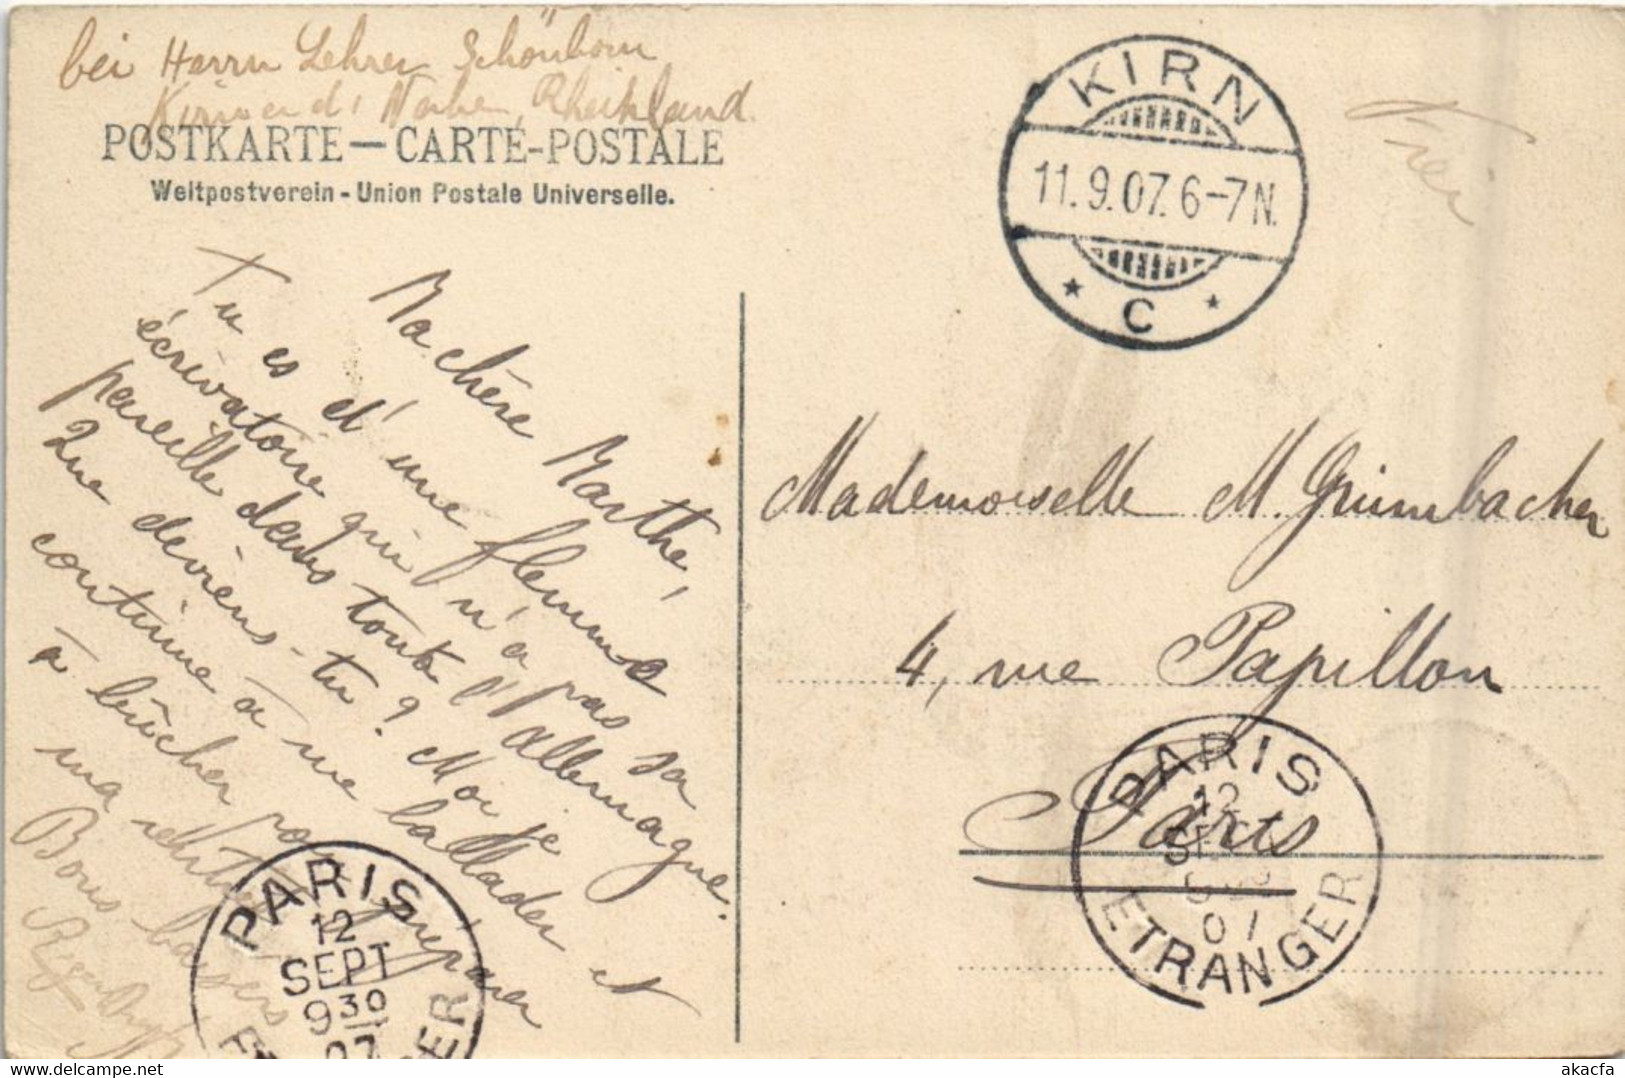 bei Herrn Lehrer Schönborn
Kirn and' Nahe, Rheinland.
POSTKARTE — CARTE-POSTALE
Weltpostverein - Union Postale Universelle.
KIRN
11.9.07. 6-7N.
* C *
Frei
Ma chère Marthe,
Tu es d'une flemme
écrivatoire qui n'a pas sa
pareille dans toute l'Allemagne.
Que deviens-tu ? Moi je
continue à me ballader et
à bûcher pour préparer
ma
Bons baisers
Mademoiselle M. Grumbacher
4, rue Papillon
Paris
PARIS
12
SEPT
9 30
07
ETRANGER
PARIS
12
SEPT
07
ETRANGER
akacfa